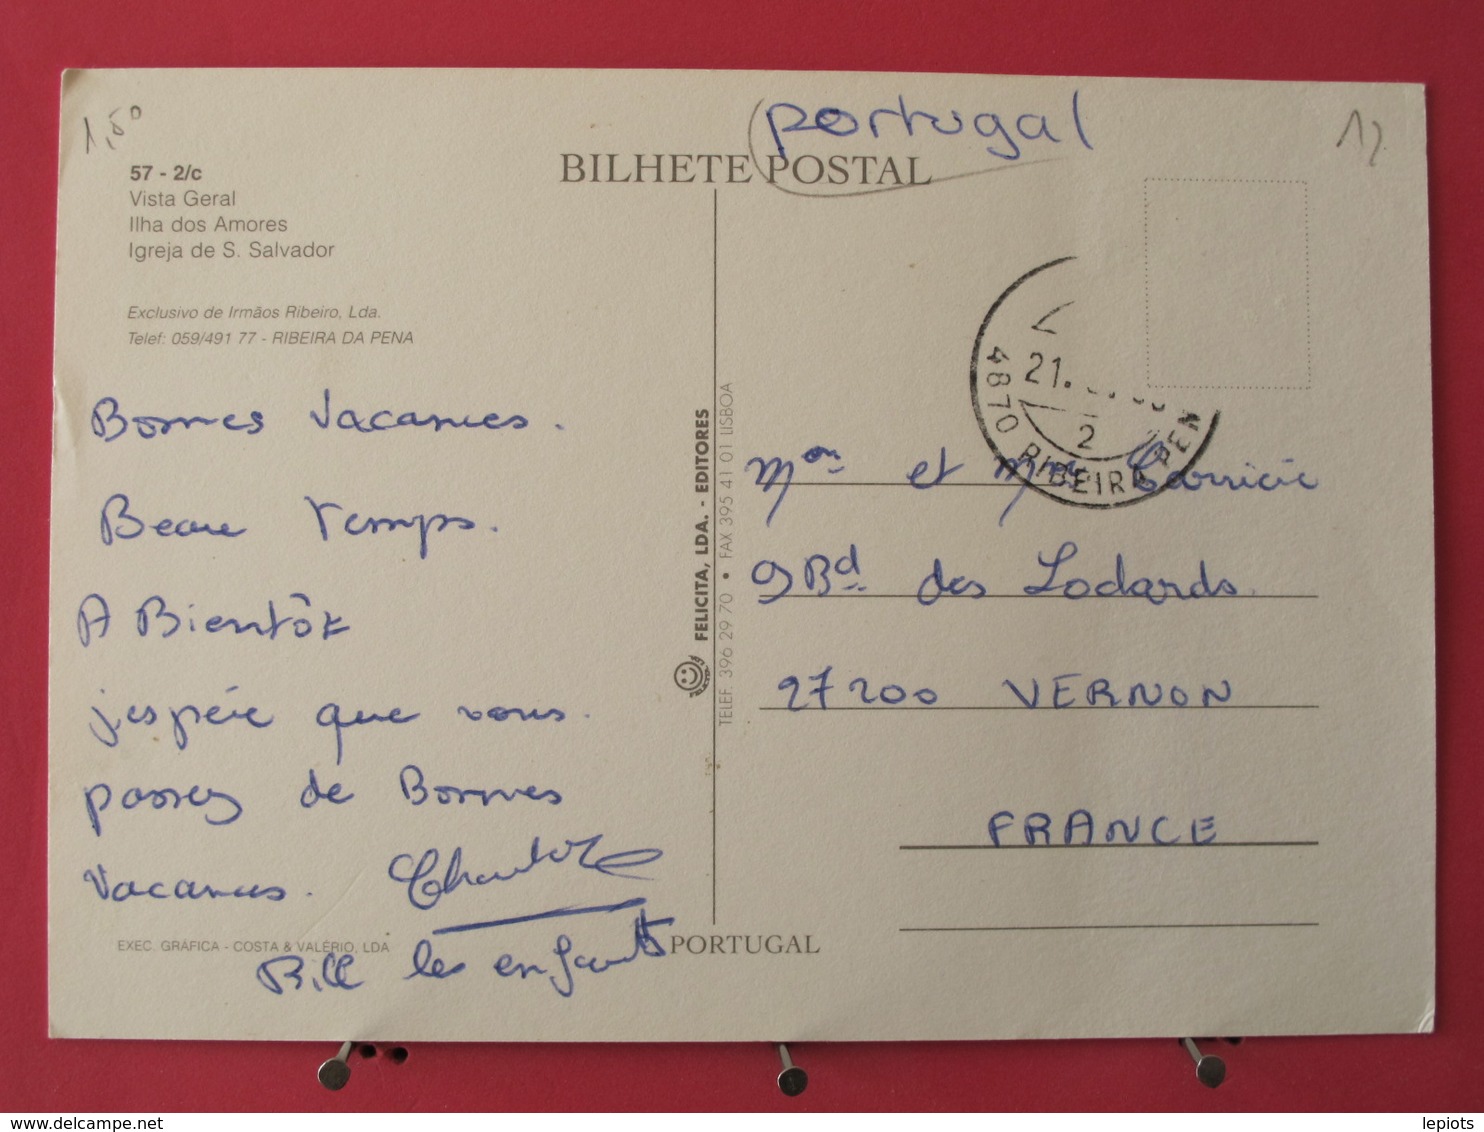 1,50
portugal
12
57 - 2/c
Vista Geral
Ilha dos Amores
Igreja de S. Salvador
BILHETE POSTAL
Exclusivo de Irmãos Ribeiro, Lda.
Telef: 059/491 77 - RIBEIRA DA PENA
Bonnes Vacances.
Beau Temps.
A Bientôt
j'espére que vous
passez de Bonnes
Vacances.
Bill les enfants
EXEC. GRÁFICA - COSTA & VALÉRIO, LDA
FELICITA, LDA. - EDITORES
TELEF. 396 29 70 • FAX 395 41 01 LISBOA
PORTUGAL
21.
2
4870 RIBEIRA PEN
Mon et Mme
9 Bd des Lodards
27200 VERNON
FRANCE
delcampe.net
lepiots